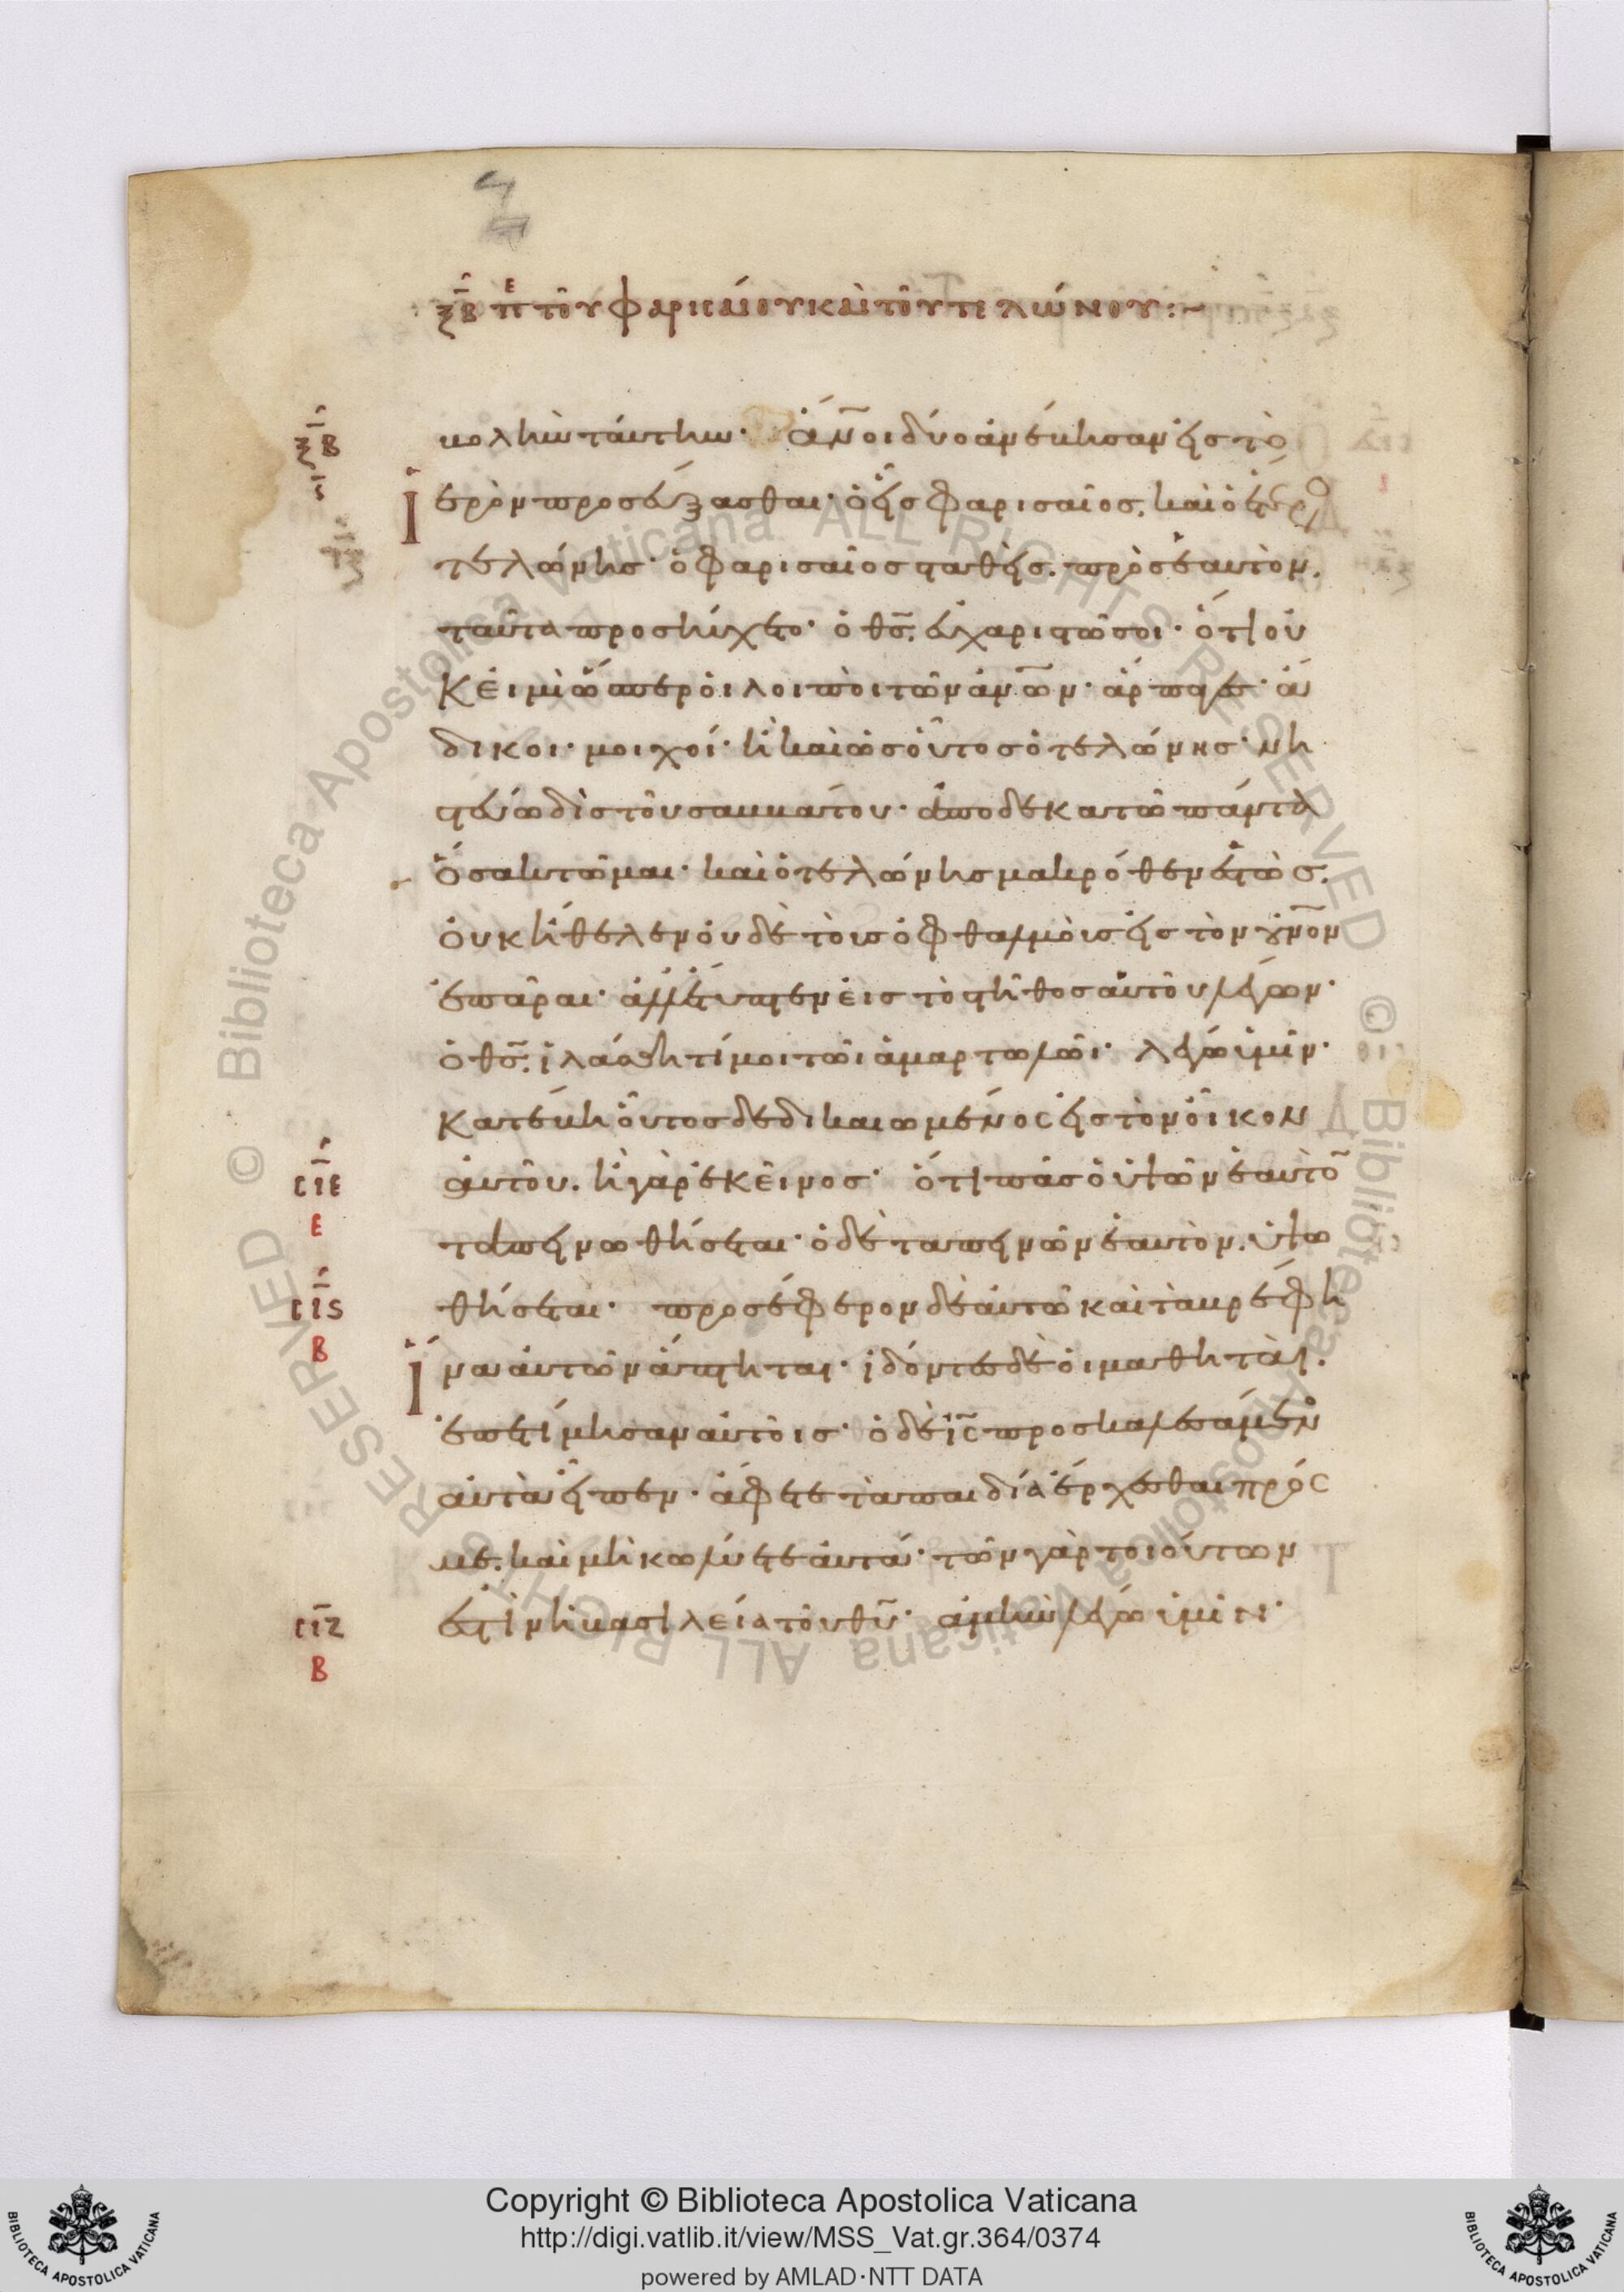 ξβ πε τοῦ φαρισαίου καὶ τοῦ τελώνου:~
ξβ
βολὴν ταύτην· ἄν̅οι δύο ἀνέβησαν εἰς τὸ
ἱερὸν προσεύξασθαι· ὁ εἷς φαρισαῖος. καὶ ὁ ἕτερο
τελώνης· ὁ φαρισαῖος σταθεὶς. πρὸς ἑαυτὸν.
ταῦτα προσηύχετο· ὁ θς̅. εὐχαριστῶ σοι· ὅτι οὐ
κ εἰμὶ ὥσπερ οἱ λοιποὶ τῶν ἀν̅ων· ἅρπαγες· ἄ
δικοι· μοιχοί· ἢ καὶ ὡς οὗτος ὁ τελώνης· νη
στεύω δὶς τοῦ σαββάτου· ἀποδεκατῶ πάντα
ὅσα κτῶμαι· καὶ ὁ τελώνης μακρόθεν ἑστὼς.
οὐκ ἤθελεν οὐδὲ τοὺς ὀφθαλμοὺς εἰς τὸν οὐν̅ον
ἐπᾶραι· ἀλλ' ἔτυπτεν εἰς τὸ στῆθος αὐτοῦ λέγων·
ὁ θς̅. ἱλάσθητί μοι τῶι ἁμαρτωλῶι· λέγω ὑμῖν·
κατέβη οὗτος δεδικαιωμένος εἰς τὸν οἶκον
αὐτοῦ. ἢ γὰρ ἐκεῖνος· ὅτι πᾶς ὁ ὑψῶν ἑαυτὸ̅
σιε
ε
ταπεινωθήσεται· ὁ δὲ ταπεινῶν ἑαυτὸν. ὑψω
θήσεται· προσέφερον δὲ αὐτῶ καὶ τὰ βρέφη
σις
β
ἵνα αὐτῶν ἅπτηται· ἰδόντες δὲ οἱ μαθηταὶ.
ἐπετίμησαν αὐτοῖς· ὁ δὲ ις̅ προσκαλεσάμενο
αὐτὰ εἶπεν· ἄφετε τὰ παιδία ἔρχεσθαι πρός
με. καὶ μὴ κωλύετε αὐτά· τῶν γὰρ τοιούτων
ἐστὶν ἡ βασιλεία τοῦ θυ̅· ἀμὴν λέγω ὑμῖν·
σιζ
β
Copyright © Biblioteca Apostolica Vaticana
http://digi.vatlib.it/view/MSS_Vat.gr.364/0374
powered by AMLAD·NTT DATA
BIBLIOTECA APOSTOLICA VATICANA
BIBLIOTECA APOSTOLICA VATICANA
© Biblioteca Apostolica Vaticana ALL RIGHTS RESERVED
© Biblioteca Apostolica Vaticana ALL RIGHTS RESERVED